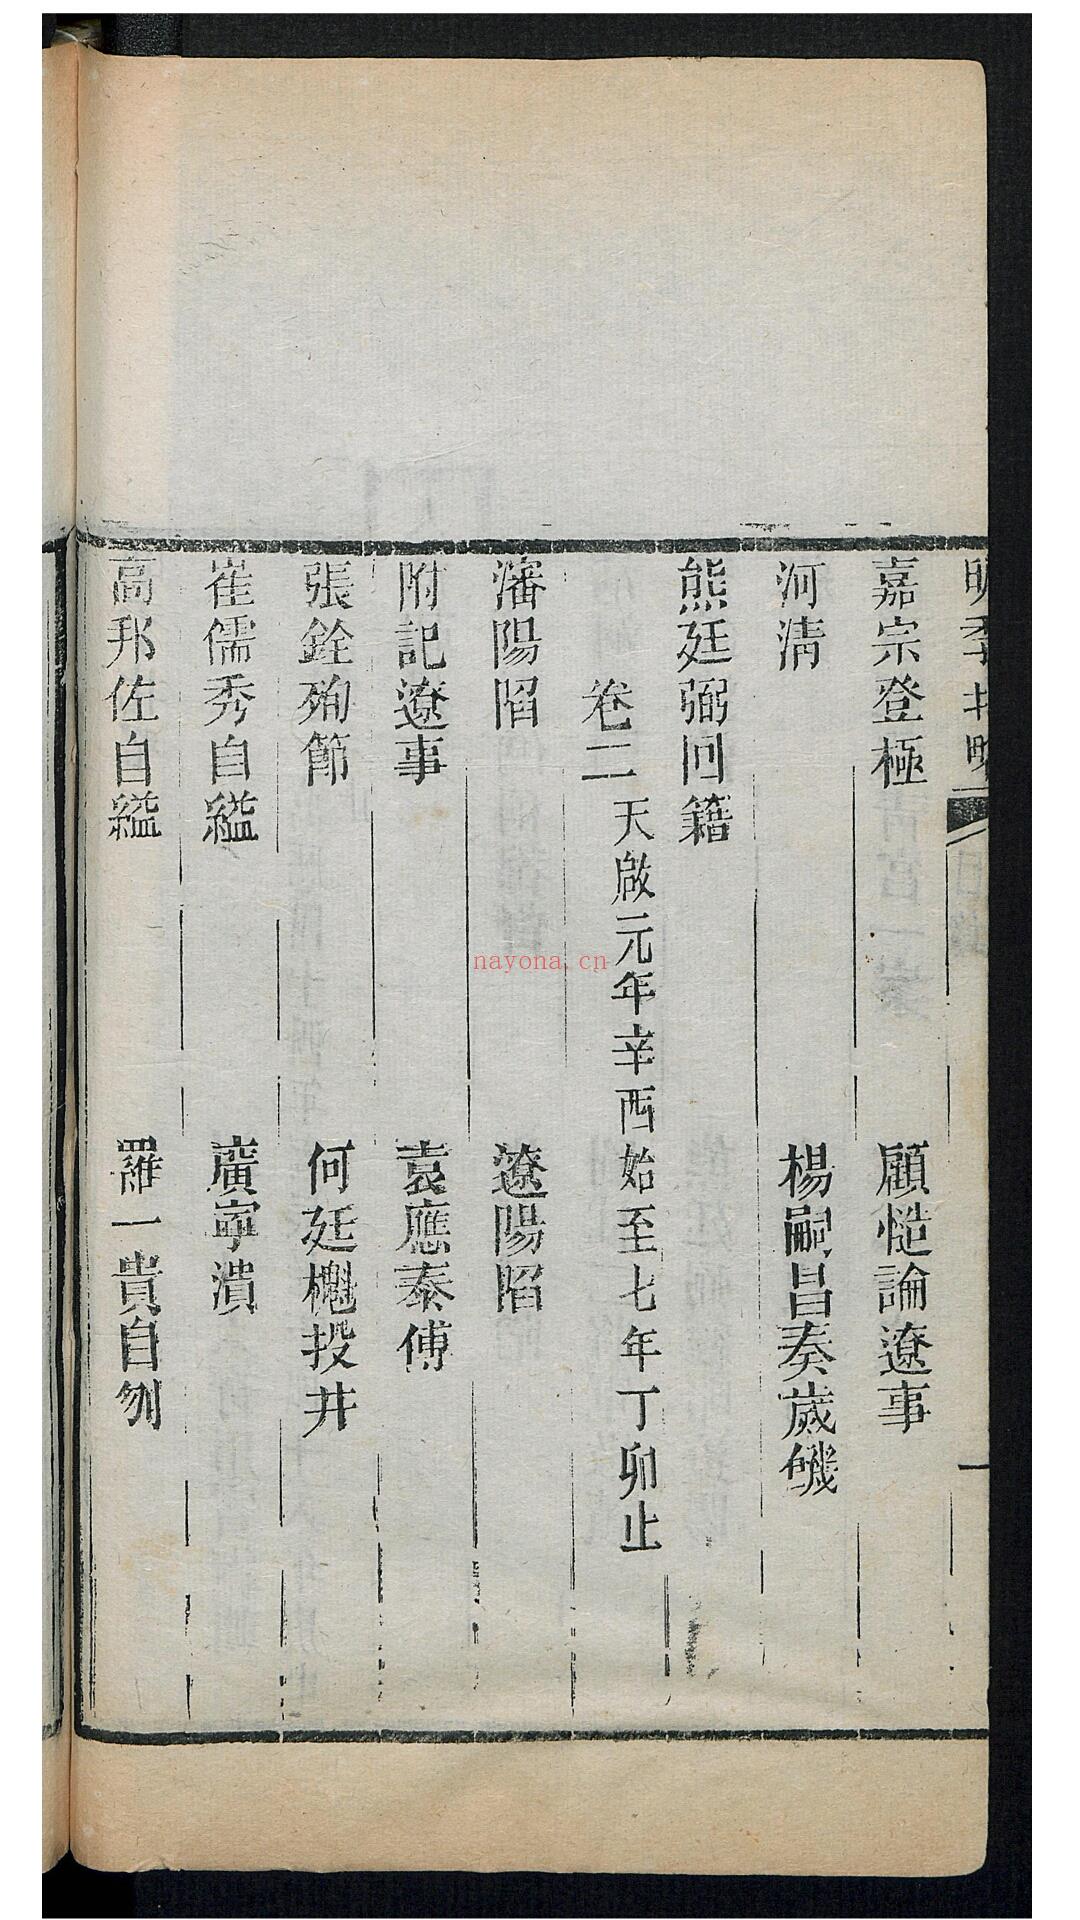 明季北略
一
嘉宗登極 顧慥論遼事
河清 楊嗣昌奏歲饑
熊廷弼回籍
卷二 天啟元年辛酉始至七年丁卯止
瀋陽陷 遼陽陷
附記遼事 袁應泰傅
張銓殉節 何廷櫆投井
崔儒秀自縊 廣寧潰
高邦佐自縊 羅一貴自刎
nayona.cn